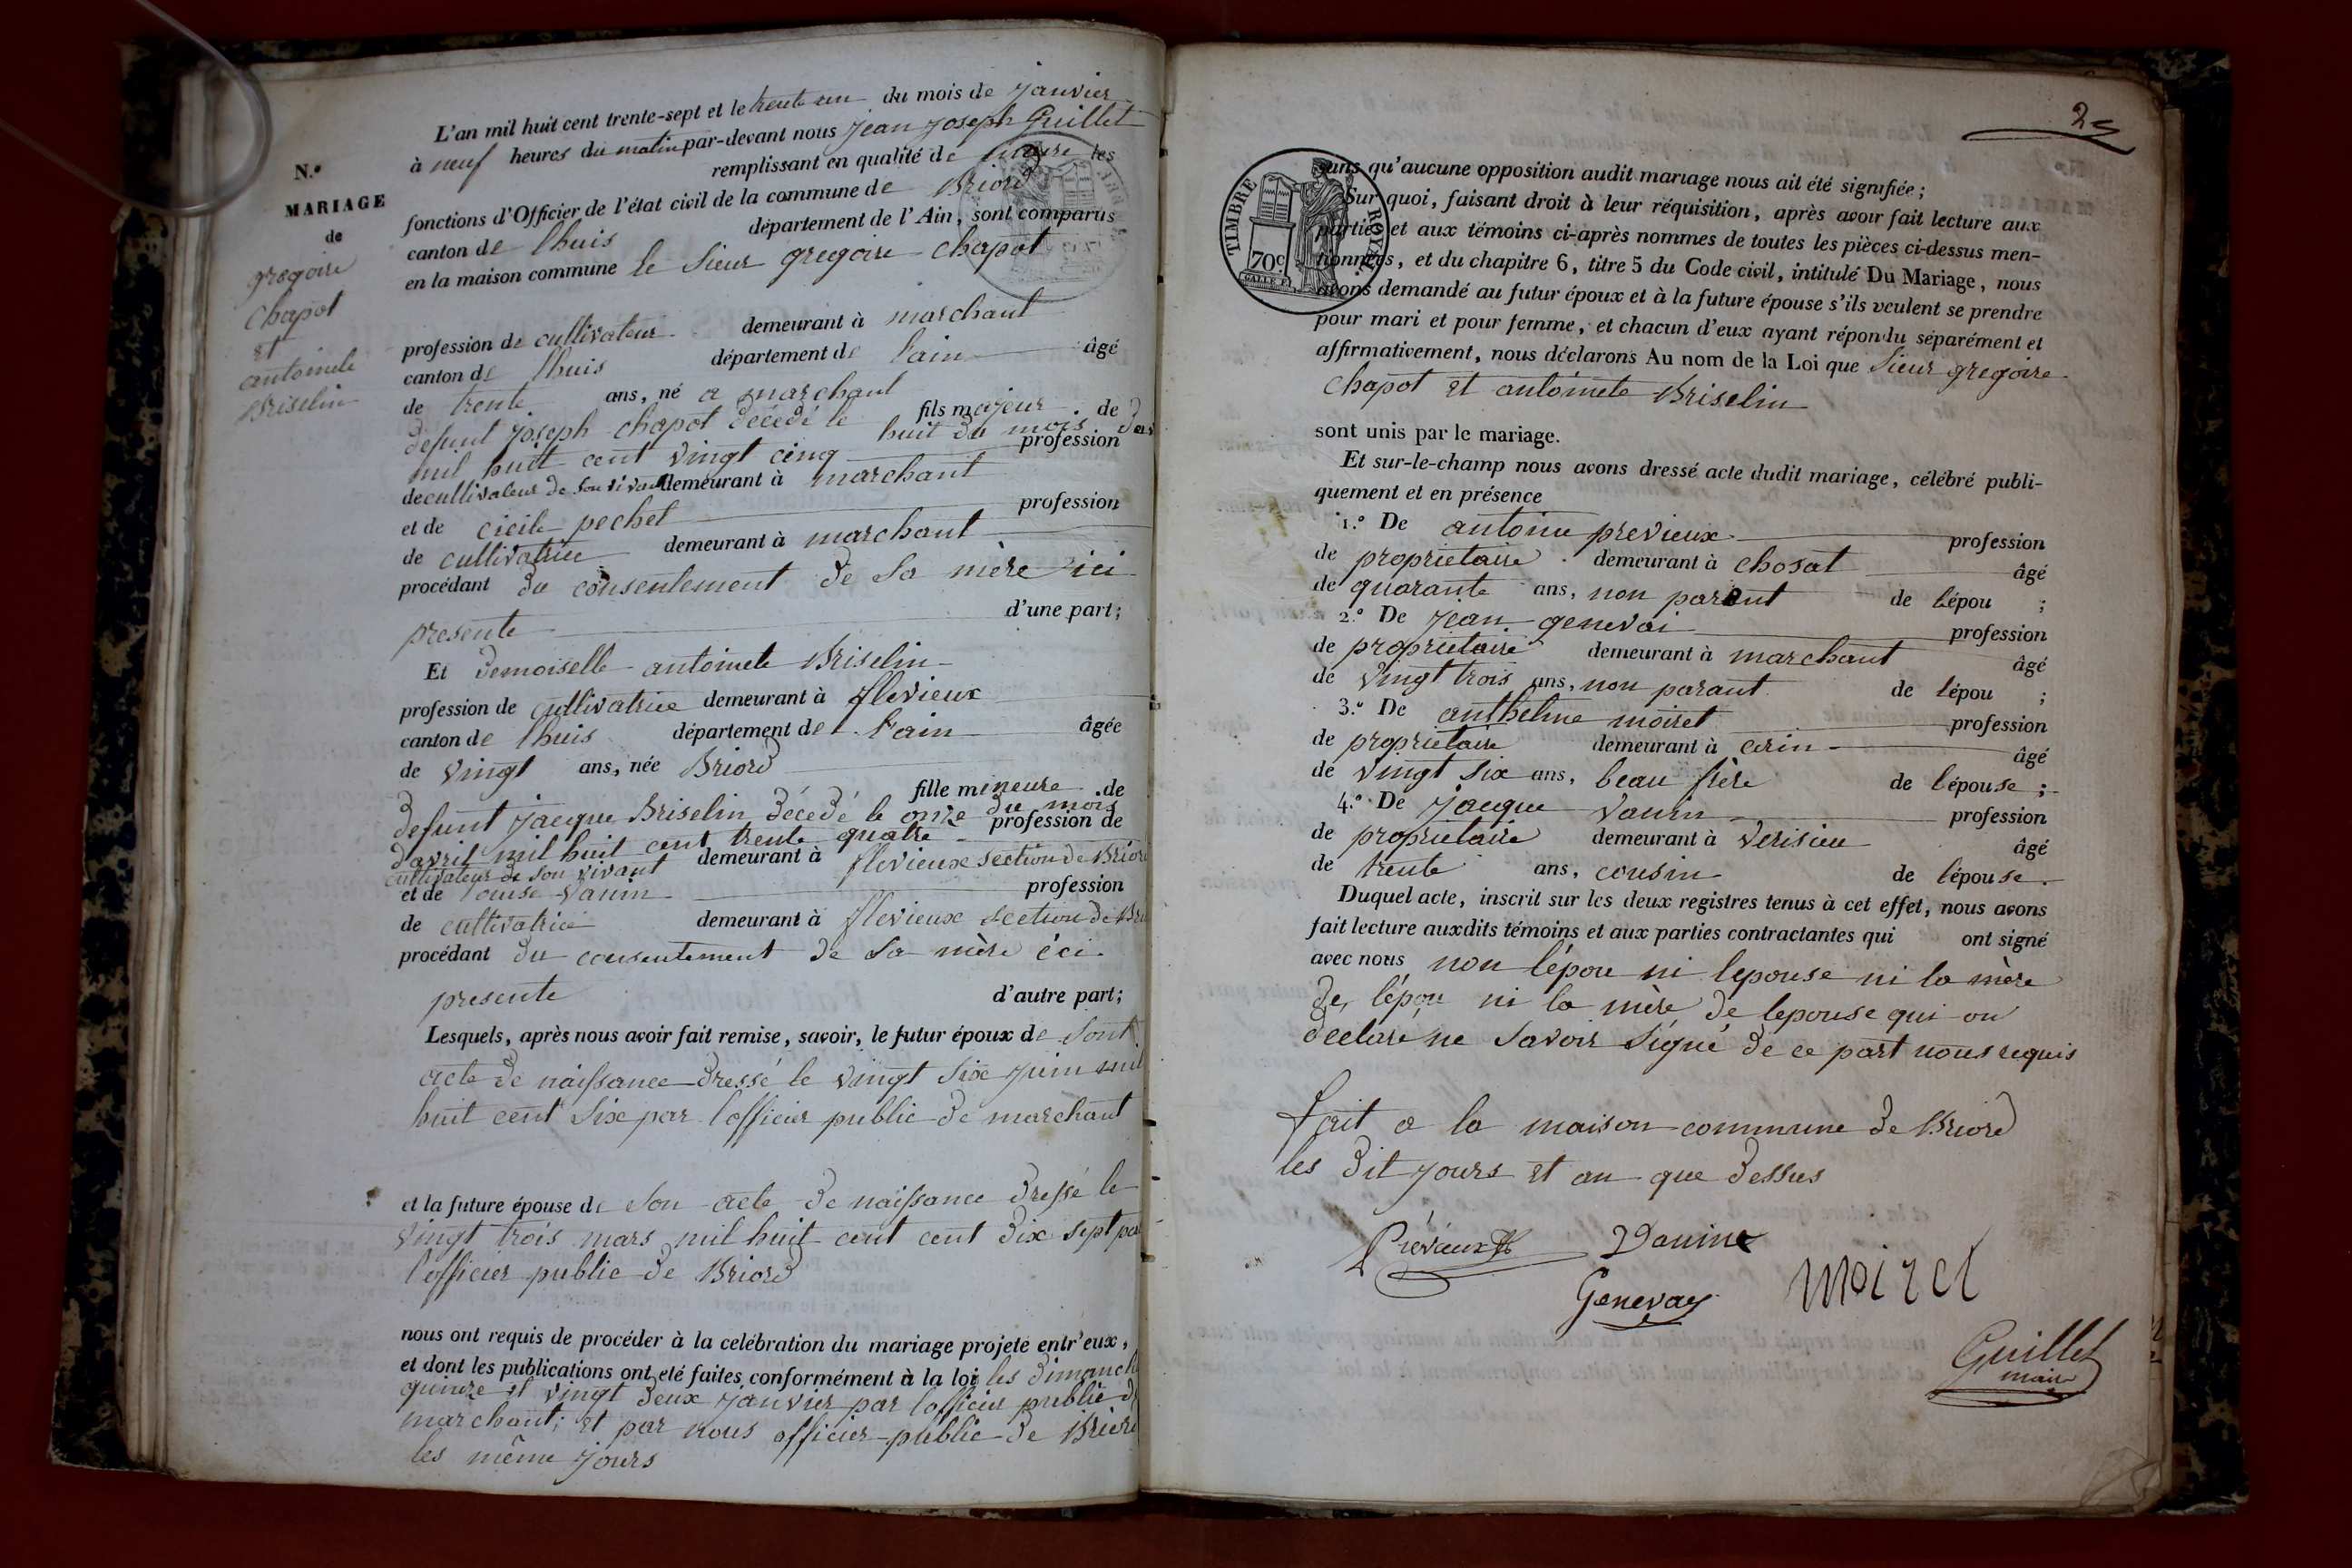 N.º
MARIAGE
de
gregoire
chapot
et
antoinete
Briselin
L'an mil huit cent trente-sept et le trente un du mois de janvier
à neuf heures du matin par-devant nous jean joseph Guillet
remplissant en qualité de maire les
fonctions d'Officier de l'état civil de la commune de Briord
canton de lhuis département de l'Ain, sont comparus
en la maison commune le sieur gregoire chapot
profession de cultivateur demeurant à marchant
canton de lhuis département de l'ain âgé
de trente ans, né a marchant
fils majeur de
defunt joseph chapot décedé le huit du mois
mil huit cent vingt cinq profession
de cultivateur de son vivant demeurant à marchant
et de cicile pechet profession
de cultivatrice demeurant à marchant
procédant du consentement de sa mère ici
presente d'une part;
Et demoiselle antoinete Briselin
profession de cultivatrice demeurant à flevieux
canton de lhuis département de l'ain âgée
de vingt ans, née Briord
fille mineure de
defunt jacque Briselin décedé le onze du mois
d'avril mil huit cent trente quatre profession de
cultivateur de son vivant demeurant à flevieux section de Briord
et de louise vanin profession
de cultivatrice demeurant à flevieux section de Bri
procédant du consentement de sa mère éci
presente d'autre part;
Lesquels, après nous avoir fait remise, savoir, le futur époux de sont
acte de naissance dressé le vingt six juin mil
huit cent six par l'officier public de marchant
et la future épouse de son acte de naissance dressé le
vingt trois mars mil huit cent cent dix sept par
l'officier public de Briord
nous ont requis de procéder à la celébration du mariage projeté entr'eux,
et dont les publications ont été faites conformément à la loi les dimanch
quinze et vingt deux janvier par l'officier public d
marchant; et par nous officier public de Briord
les même jours
25
TIMBRE ROYAL
70c
sans qu'aucune opposition audit mariage nous ait été signifiée;
Sur quoi, faisant droit à leur réquisition, après avoir fait lecture aux
parties et aux témoins ci-après nommes de toutes les pièces ci-dessus men-
tionnées, et du chapitre 6, titre 5 du Code civil, intitulé Du Mariage, nous
avons demandé au futur époux et à la future épouse s'ils veulent se prendre
pour mari et pour femme, et chacun d'eux ayant répondu séparément et
affirmativement, nous déclarons Au nom de la Loi que sieur gregoire
chapot et antoinete Briselin
sont unis par le mariage.
Et sur-le-champ nous avons dressé acte dudit mariage, célébré publi-
quement et en présence
1.º De antoine previeux profession
de proprietaire demeurant à chosat âgé
de quarante ans, non parent de l'épou ;
2.º De jean genevai profession
de proprietaire demeurant à marchant âgé
de vingt trois ans, non parant de l'épou ;
3.º De anthelme moiret profession
de proprietaire demeurant à cerin âgé
de vingt six ans, beau frère de l'épouse ;
4.º De jacque vanin profession
de proprietaire demeurant à verisieu âgé
de trente ans, cousin de l'épouse.
Duquel acte, inscrit sur les deux registres tenus à cet effet, nous avons
fait lecture auxdits témoins et aux parties contractantes qui ont signé
avec nous non l'épou ni lepouse ni la mère
de l'épou ni la mère de lepouse qui on
declaré ne savoir signé de ce part nous requis
fait a la maison commune de Briord
les dit jours et an que dessus
Prévieux Vanine
Genevay Moiret
Guillet
maire